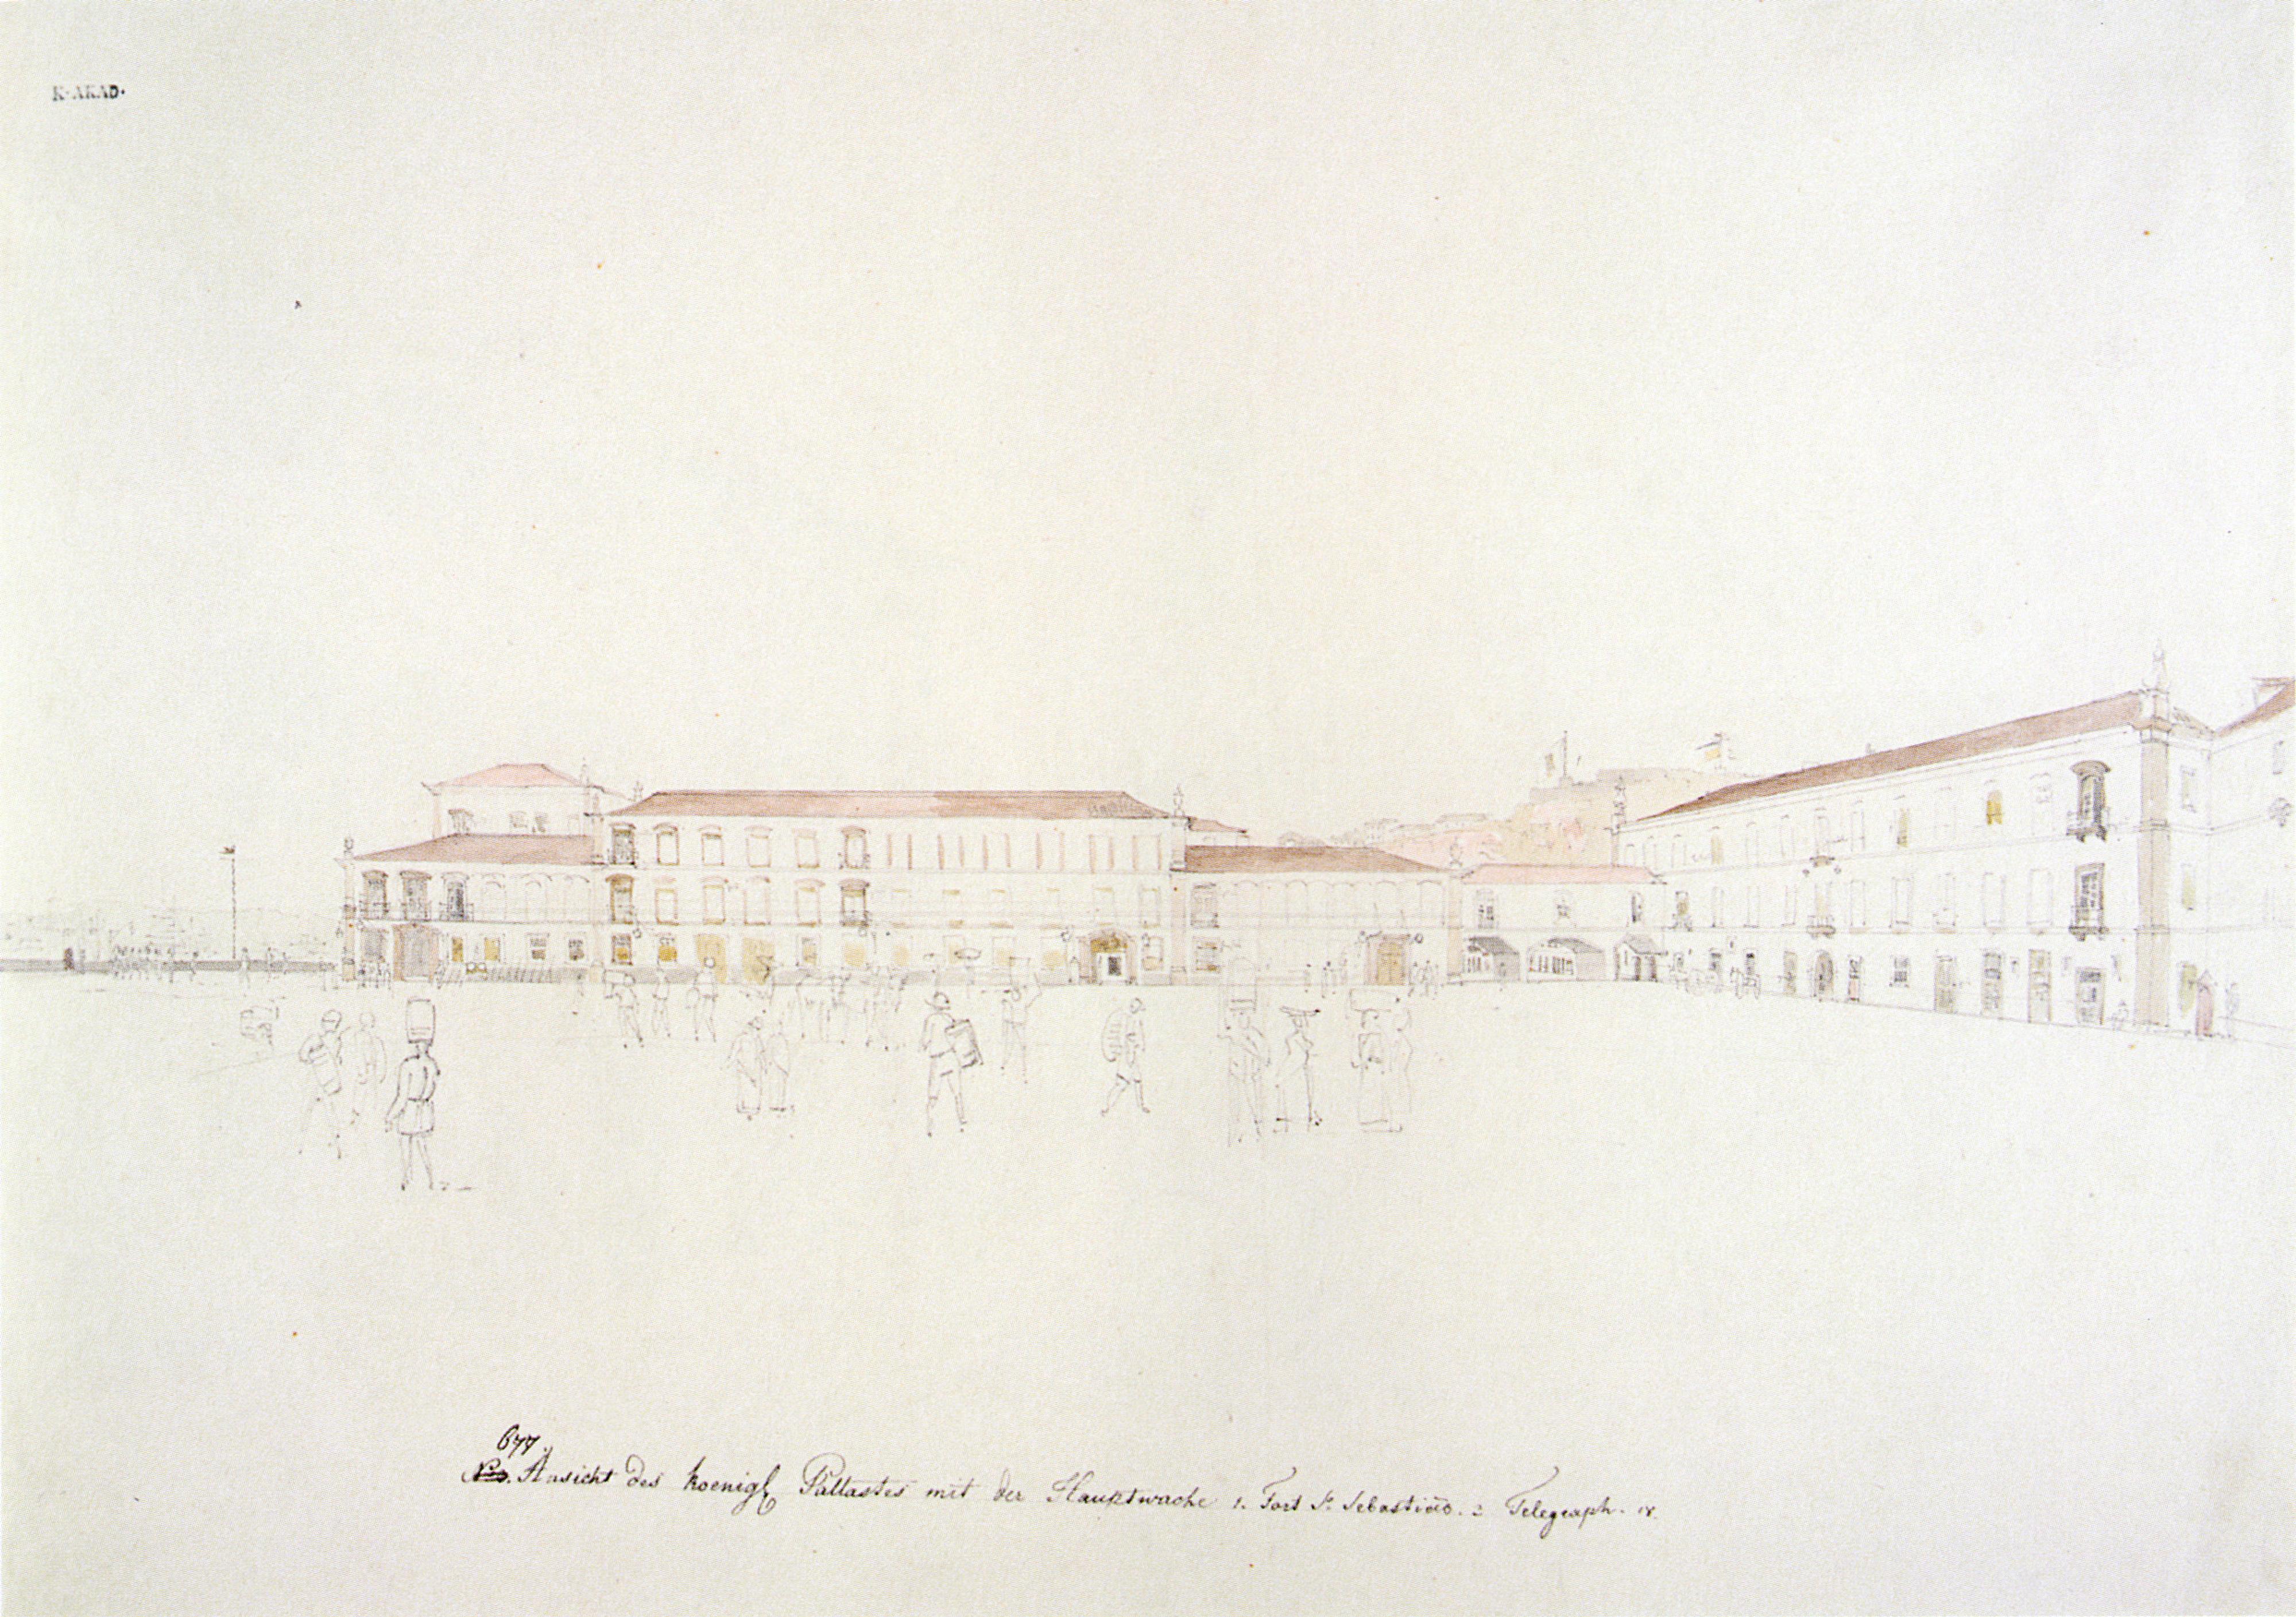 K·AKAD.
677.
No. Ansicht des koenigl Pallastes mit der Hauptwache 1. Fort S. Sebastião. 2 Telegraph.